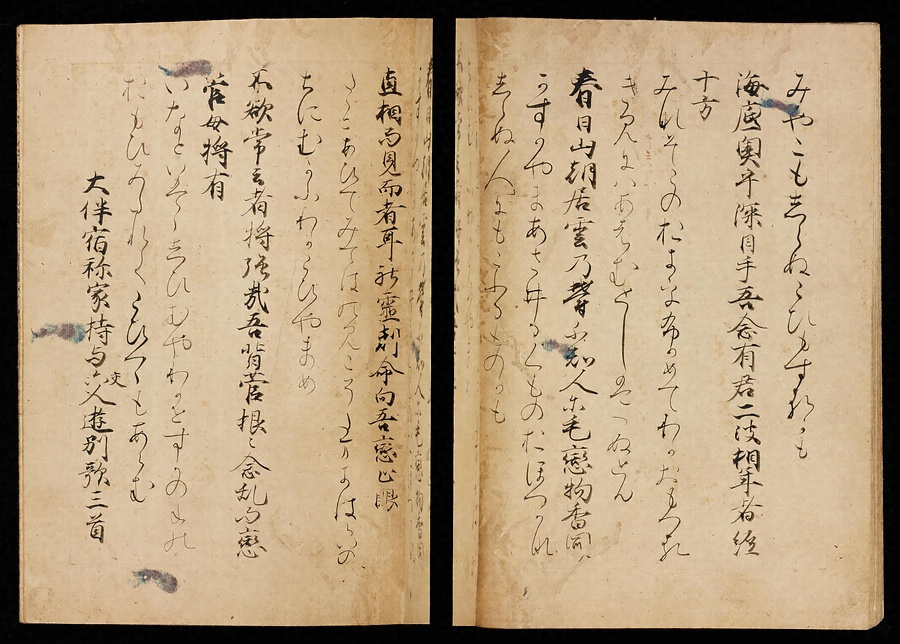 みやこもしらぬこひもするかも
海底奥乎深目手吾念有君二波相年者經
十方
みれそこのおきをふかめてわかおもへる
きみにはあはむとしはへぬとん
春日山朝居雲乃欝不知人尓毛戀物香聞
かすかやまあさ井るくものおほつかな
しらぬ人にもこふるものかも
直相而見而者耳社靈剋命向吾戀止眼
たゝにあひてみてはのみこそたまきはるいの
ちにむかふわかこひやまめ
不欲常云者将強哉吾背菅根之念乱而戀
管母将有
いなといはゝしひむやわかせすかのねの
おもひみたれてこひつゝもあらむ
大伴宿祢家持与交遊別歌三首